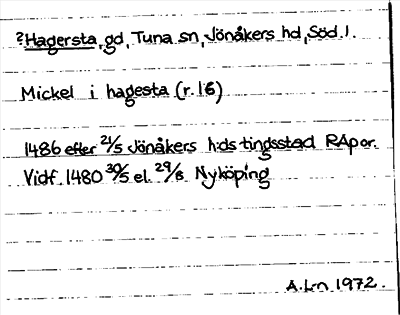 ?Hagersta, gd, Tuna sn, Jönåkers hd, Söd.l.
Mickel i hagesta (r.16)
1486 efter 21/5 Jönåkers h:ds tingsstad RApor.
Vidf. 1480 30/5 el. 29/8 Nyköping
A.Lrn 1972.